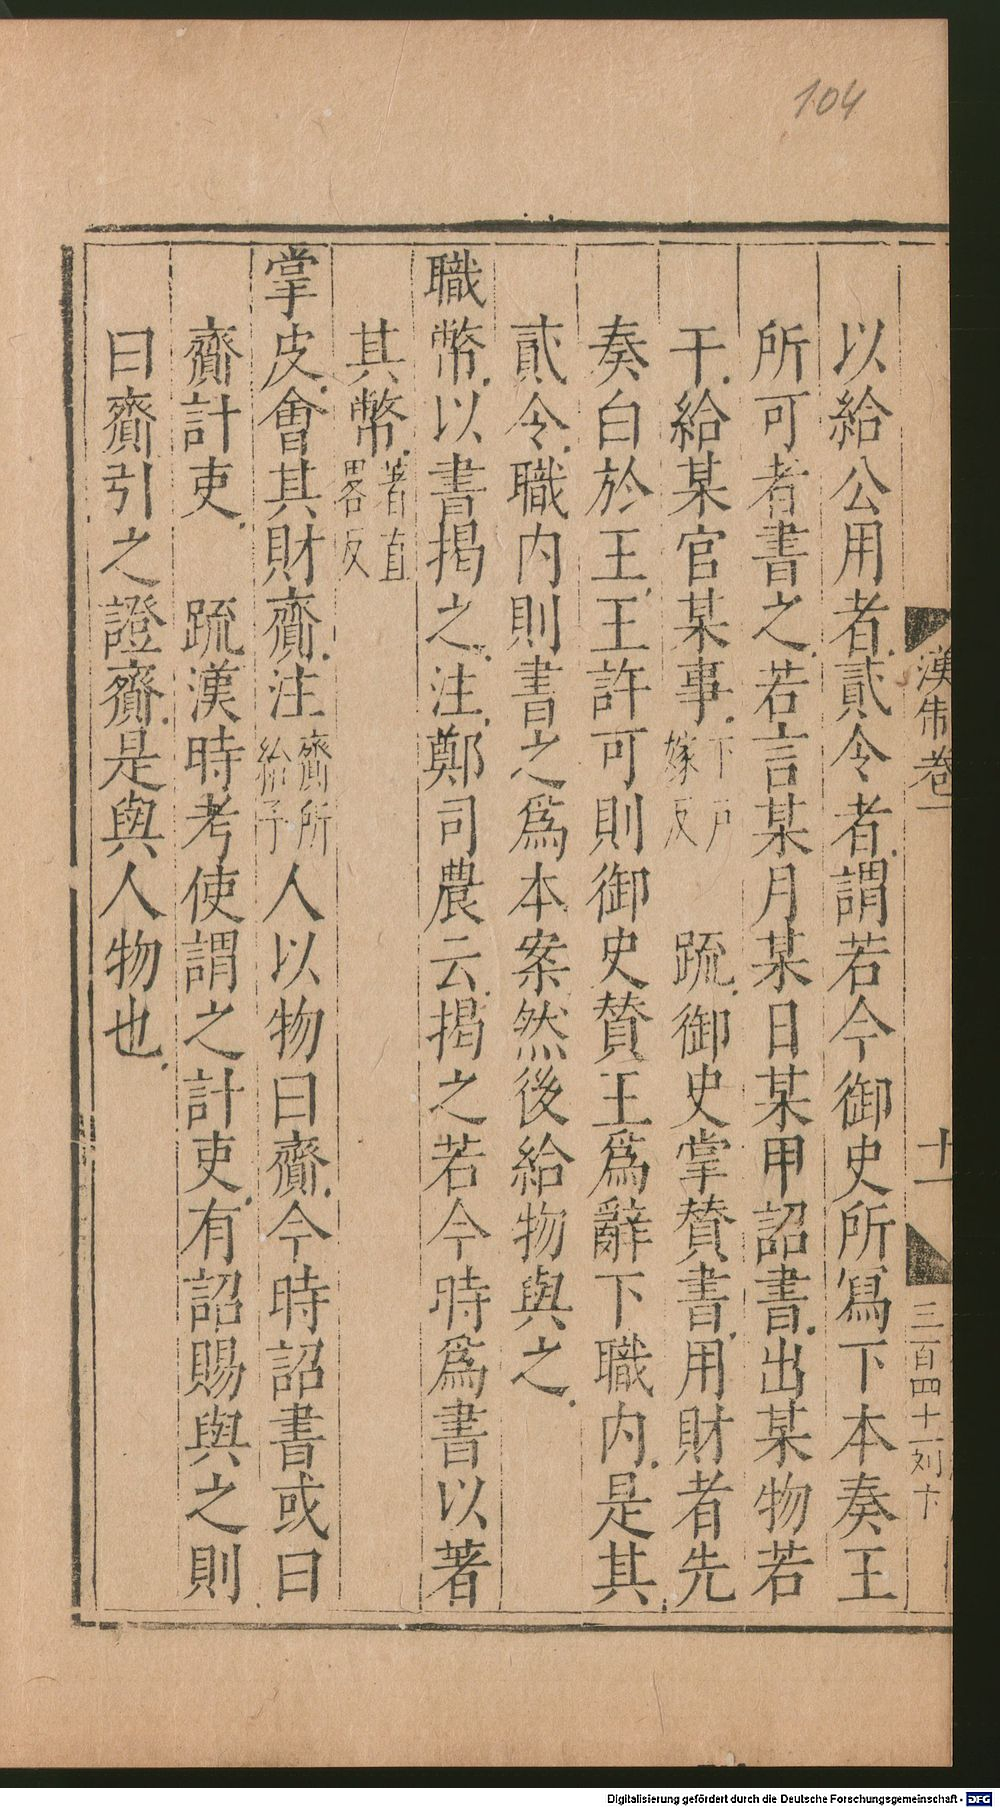 104
漢制卷一
十一
三百四十一刘卞
以給公用者貳令者謂若今御史所寫下本奏王
所可者書之若言某月某日某甲詔書出某物若
干給某官某事下戸嫁反 䟽御史掌賛書用財者先
奏白於王王許可則御史賛王爲辭下職内是其
貳令職内則書之爲本案然後給物與之
職幣以書揭之注鄭司農云揭之若今時爲書以著
其幣著直畧反
掌皮會其財齎注齎所給予人以物曰齎今時詔書或曰
齎計吏 䟽漢時考使謂之計吏有詔賜與之則
曰齎引之證齎是與人物也
Digitalisierung gefördert durch die Deutsche Forschungsgemeinschaft - DFG